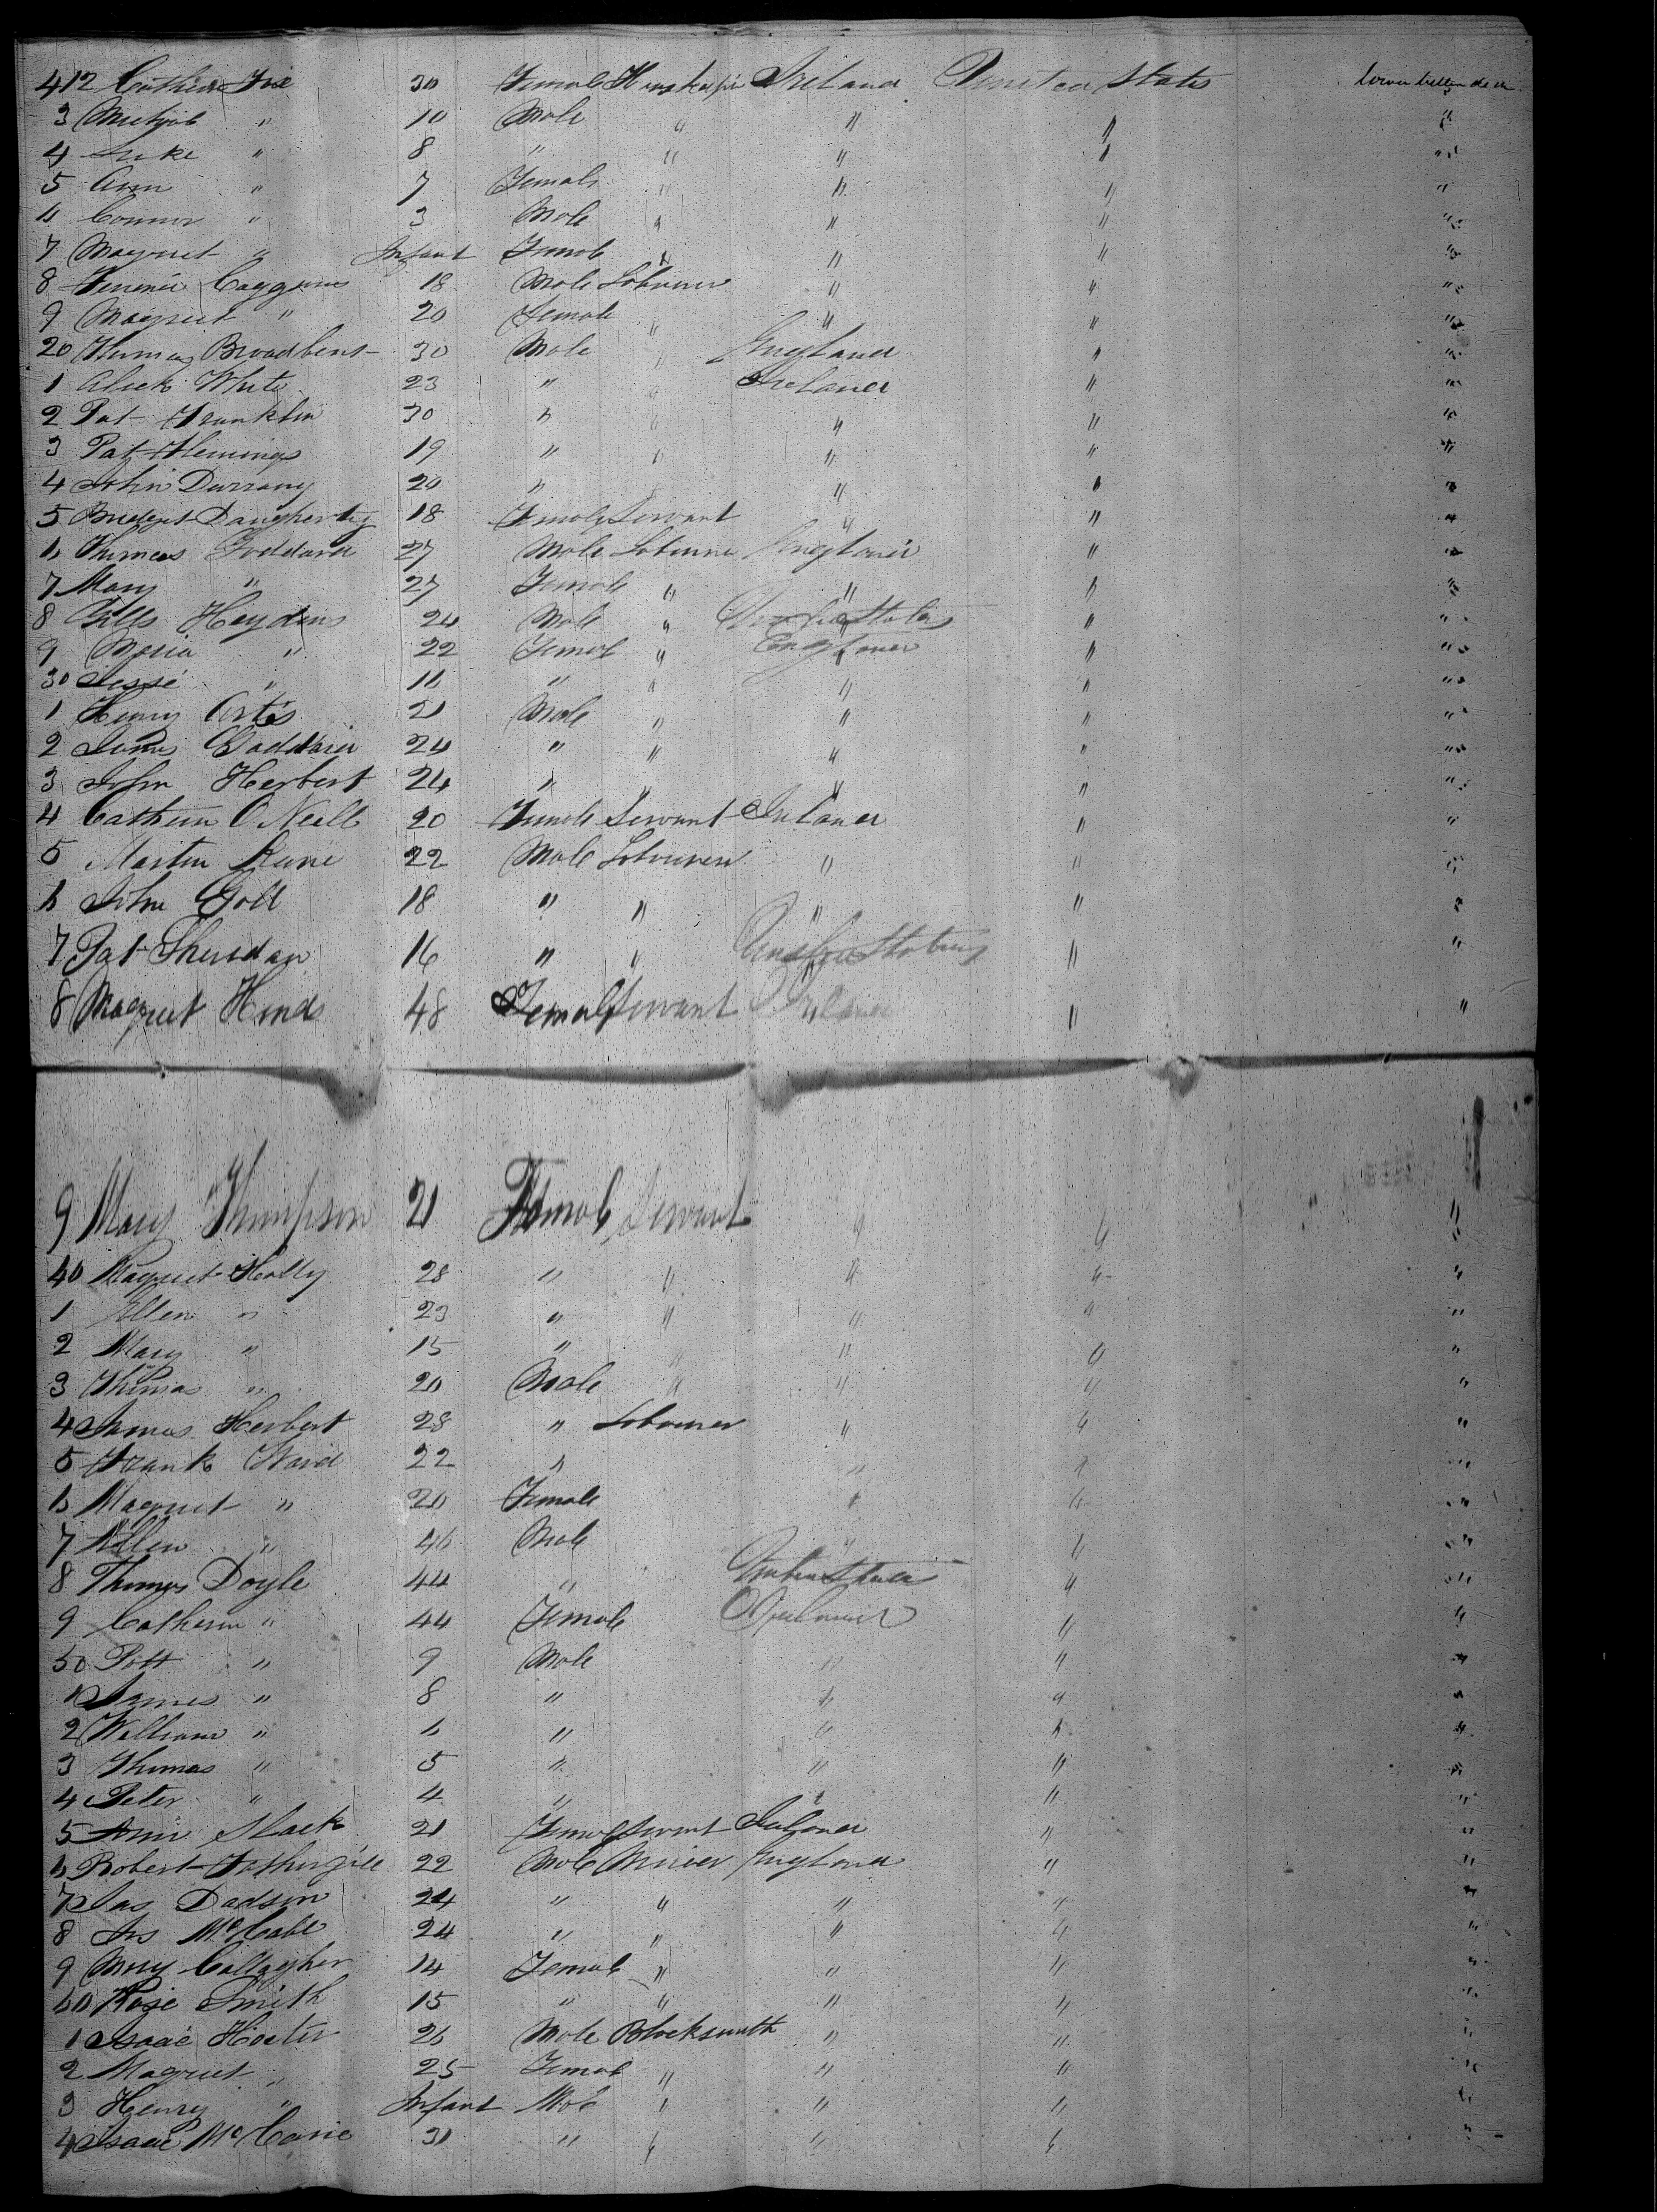 412 Cathein Fox 30 Female Ireland United States
3 " 10 Male " " " "
4 Luke " 8 " " " " "
5 Ann " 7 Female " " " "
6 Connor " 3 Male " " " "
7 Magret " Infant Female " " " "
8 18 Male Labourer " " "
9 Magret " 20 Female " " " "
20 Thomas Broadbent 30 Male " England " "
1 Alick White 23 " " Ireland " "
2 Pat Franklin 30 " " " " "
3 Pat Flemings 19 " " " " "
4 John Durrany 20 " " " " "
5 Bridget Daugherty 18 Female Servant " " "
6 Thomas Goddard 27 Male Labourer England " "
7 Mary " 27 Female " " " "
8 Haydens 24 Male " United States " "
9 Maria " 22 Female " England " "
30 Jesse " 16 " " " " "
1 Henry Artis 21 Male " " " "
2 James Goddard 24 " " " " "
3 John Herbert 24 " " " " "
4 Cathrin O Neill 20 Female Servant Ireland " "
5 Martin Kune 22 Male Labourer " " "
6 John Goll 18 " " " " "
7 Pat Sheridan 16 " " United States " "
8 Magret Hinds 48 Female Servant Ireland " "
9 Mary Thompson 21 Female Servant " " "
40 Magret Holly 28 " " " " "
1 Ellen " 23 " " " " "
2 Mary " 15 " " " " "
3 Thomas " 20 Male " " " "
4 James Herbert 28 " Labourer " " "
5 Frank Ward 22 " " " "
6 Magret " 20 Female " " "
7 Allen " 46 Male " " "
8 Thomas Doyle 44 " United States " "
9 Catherin " 44 Female Ireland " "
50 Patt " 9 Male " " "
1 James " 8 " " " "
2 William " 6 " " " "
3 Thomas " 5 " " " "
4 Peter " 4 " " " "
5 Ann Slack 21 Female Servant Ireland " "
6 Robert Fothergill 22 Male Miner England " "
7 Jas Dadson 24 " " " " "
8 Jas McCabe 24 " " " " "
9 Mary Callagher 14 Female " " " "
60 Rose Smith 15 " " " " "
1 Isaac Hoater 26 Male Blacksmith " " "
2 Magret " 25 Female " " " "
3 Henry " Infant Male " " " "
4 Isaac McCarie 31 " " " " "